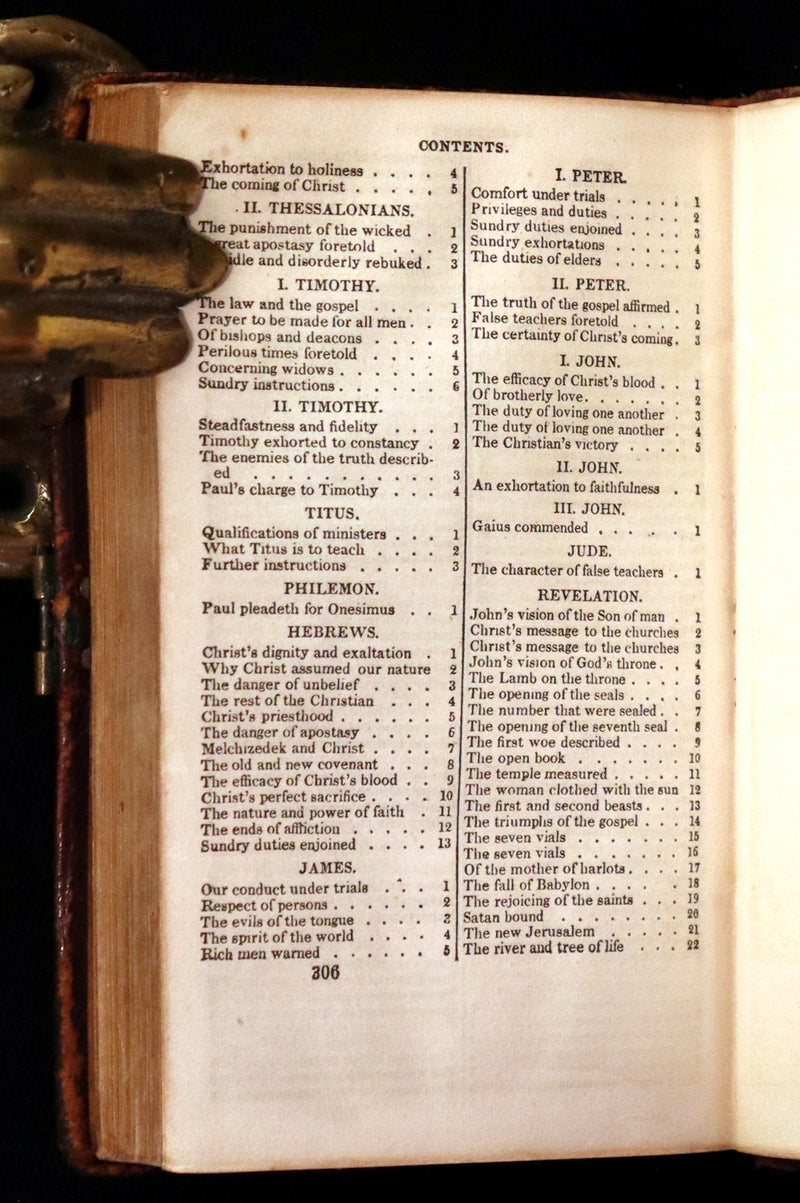 CONTENTS.
Exhortation to holiness . . . . 4
The coming of Christ . . . . . 5
II. THESSALONIANS.
The punishment of the wicked . 1
great apostasy foretold . . . 2
idle and disorderly rebuked . 3
I. TIMOTHY.
The law and the gospel . . . . 1
Prayer to be made for all men . . 2
Of bishops and deacons . . . . 3
Perilous times foretold . . . . 4
Concerning widows . . . . . . 5
Sundry instructions . . . . . . 6
II. TIMOTHY.
Steadfastness and fidelity . . . 1
Timothy exhorted to constancy . 2
The enemies of the truth describ-
ed . . . . . . . . . . . 3
Paul's charge to Timothy . . . 4
TITUS.
Qualifications of ministers . . . 1
What Titus is to teach . . . . 2
Further instructions . . . . . 3
PHILEMON.
Paul pleadeth for Onesimus . . 1
HEBREWS.
Christ's dignity and exaltation . 1
Why Christ assumed our nature 2
The danger of unbelief . . . . 3
The rest of the Christian . . . 4
Christ's priesthood . . . . . . 5
The danger of apostasy . . . . 6
Melchizedek and Christ . . . . 7
The old and new covenant . . . 8
The efficacy of Christ's blood . . 9
Christ's perfect sacrifice . . . . 10
The nature and power of faith . 11
The ends of affliction . . . . . 12
Sundry duties enjoined . . . . 13
JAMES.
Our conduct under trials . . . 1
Respect of persons . . . . . . 2
The evils of the tongue . . . . 3
The spirit of the world . . . . 4
Rich men warned . . . . . . 5
306
I. PETER.
Comfort under trials . . . . . 1
Privileges and duties . . . . . 2
Sundry duties enjoined . . . . 3
Sundry exhortations . . . . . 4
The duties of elders . . . . . 5
II. PETER.
The truth of the gospel affirmed . 1
False teachers foretold . . . . 2
The certainty of Christ's coming. 3
I. JOHN.
The efficacy of Christ's blood . . 1
Of brotherly love. . . . . . . 2
The duty of loving one another . 3
The duty of loving one another . 4
The Christian's victory . . . . 5
II. JOHN.
An exhortation to faithfulness . 1
III. JOHN.
Gaius commended . . . . . . 1
JUDE.
The character of false teachers . 1
REVELATION.
John's vision of the Son of man . 1
Christ's message to the churches 2
Christ's message to the churches 3
John's vision of God's throne . . 4
The Lamb on the throne . . . . 5
The opening of the seals . . . . 6
The number that were sealed . . 7
The opening of the seventh seal . 8
The first woe described . . . . 9
The open book . . . . . . . 10
The temple measured . . . . . 11
The woman clothed with the sun 12
The first and second beasts . . . 13
The triumphs of the gospel . . . 14
The seven vials . . . . . . . 15
The seven vials . . . . . . . 16
Of the mother of harlots . . . . 17
The fall of Babylon . . . . . 18
The rejoicing of the saints . . . 19
Satan bound . . . . . . . . 20
The new Jerusalem . . . . . 21
The river and tree of life . . . 22